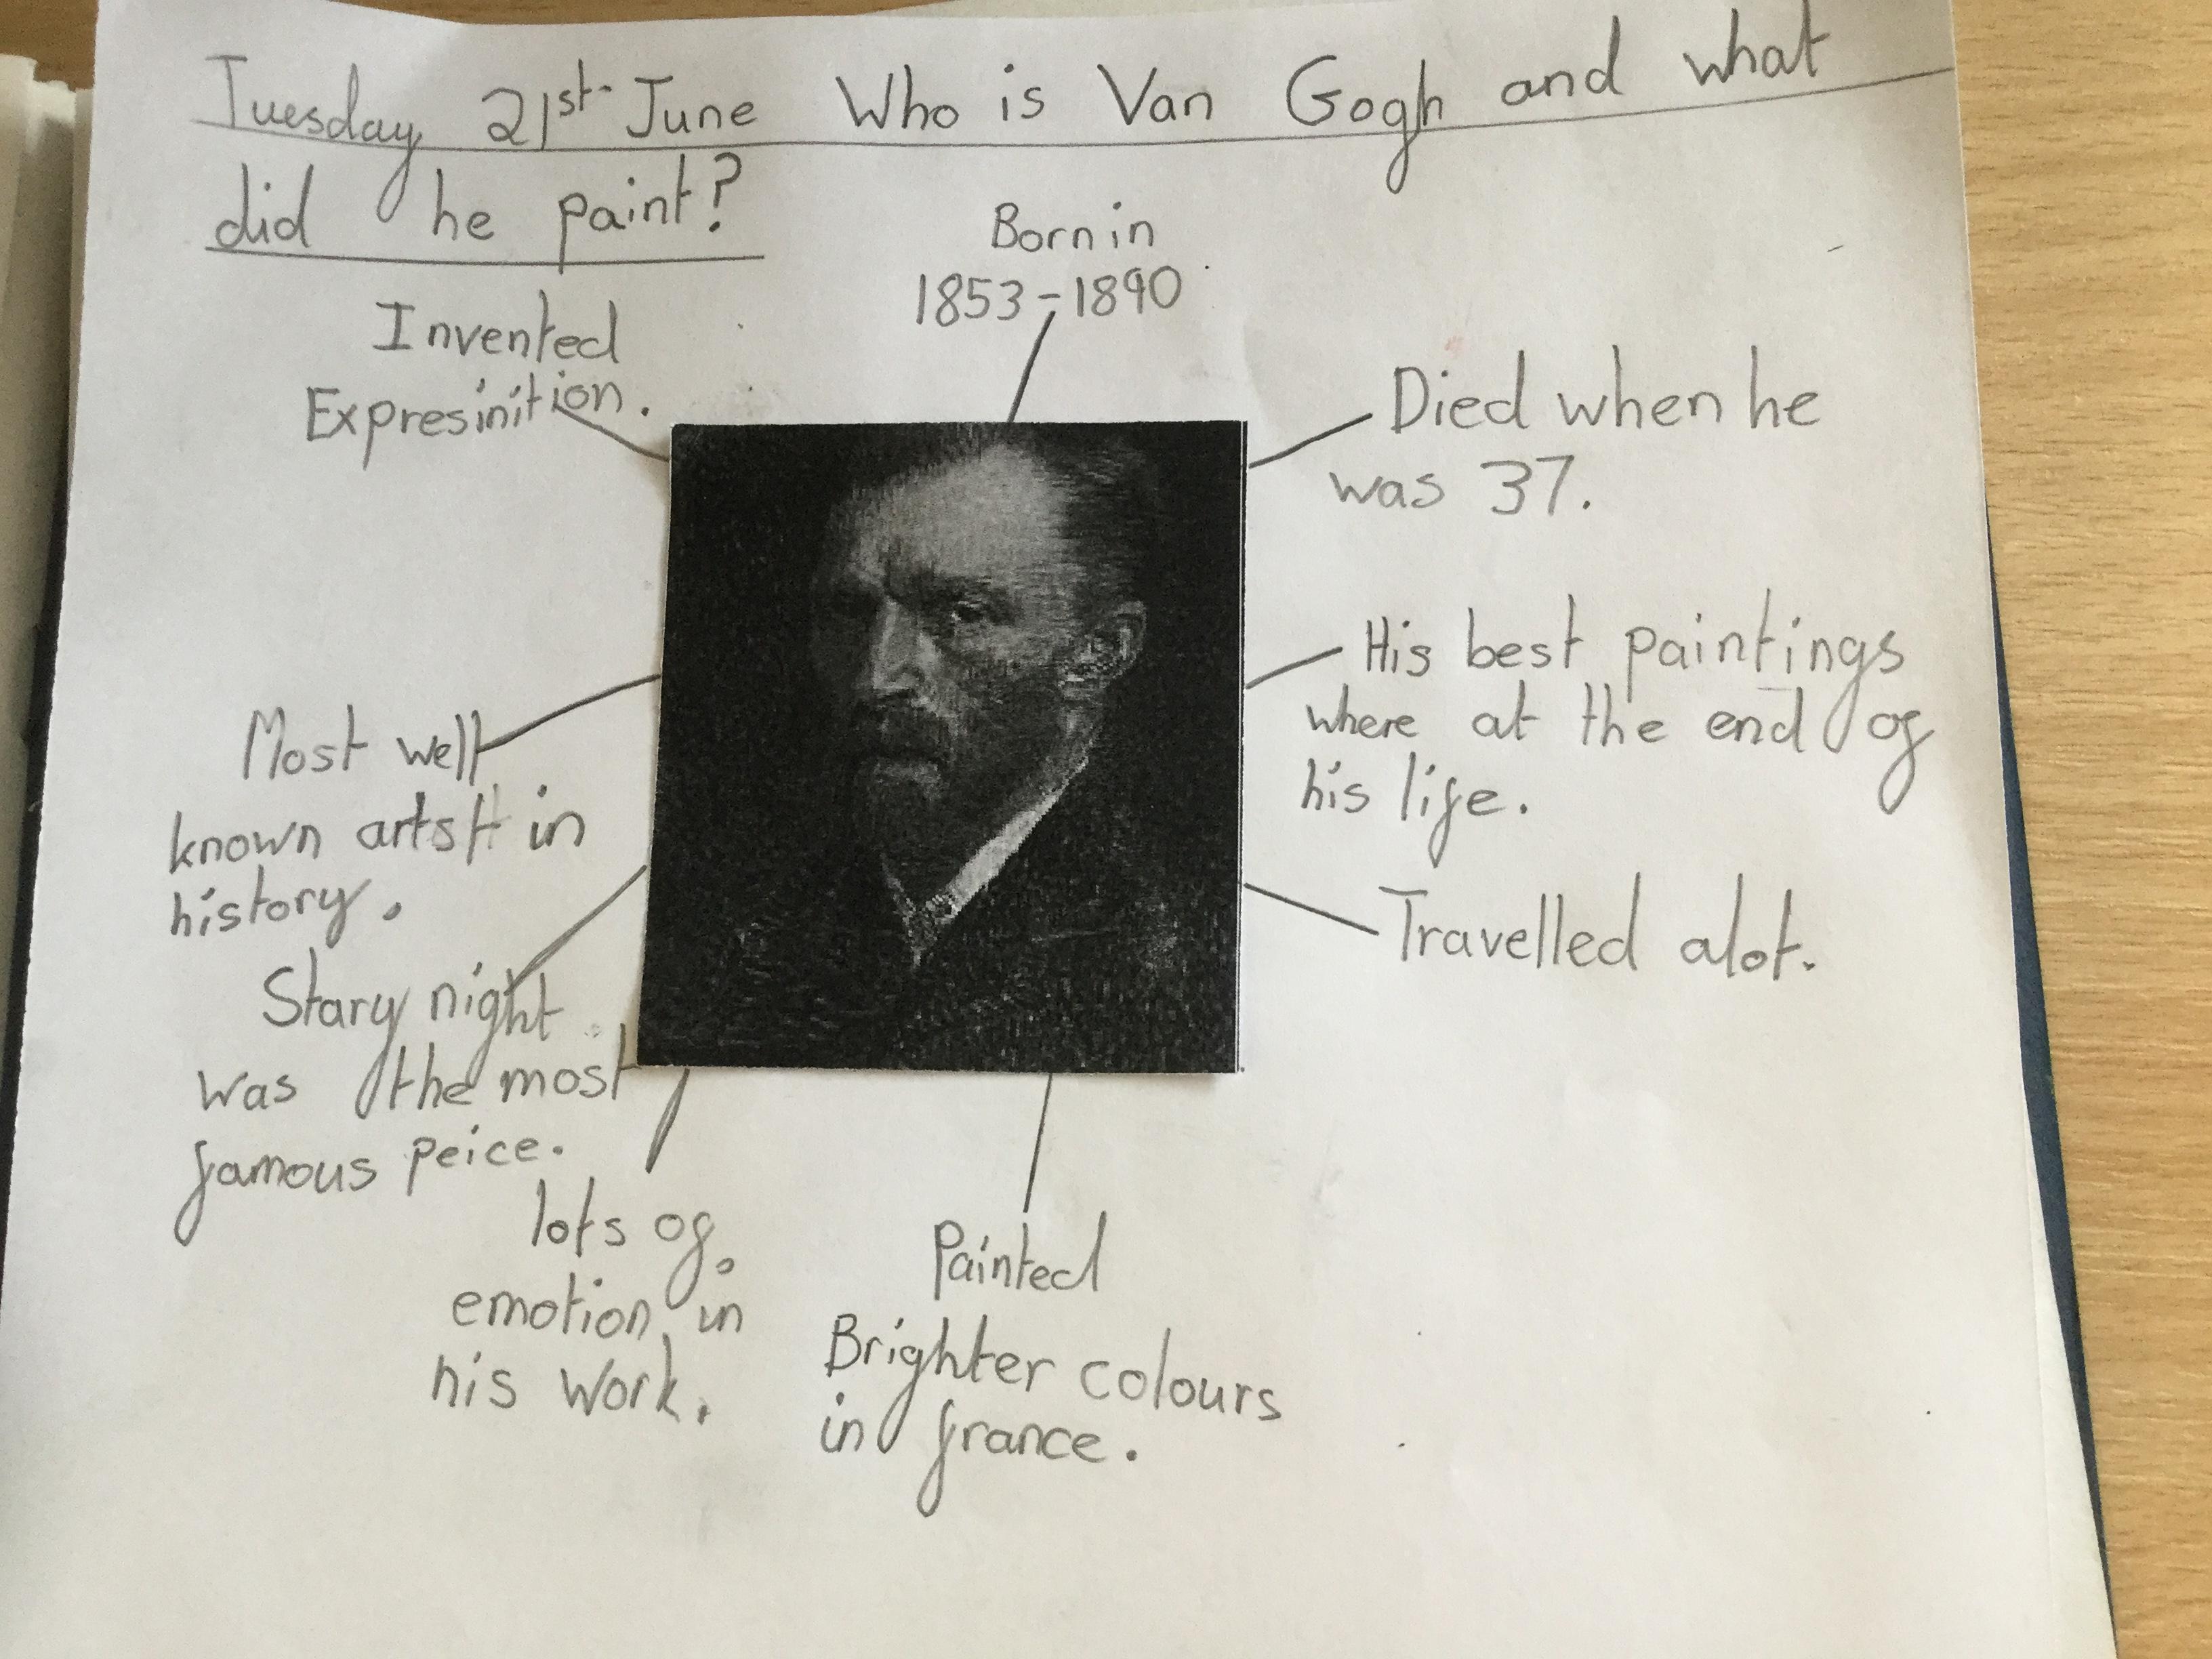 Tuesday 21st June Who is Van Gogh and what
did he paint?
Born in
1853-1890
Invented
Expresinition.
Died when he
was 37.
His best paintings
where at the end of
his life.
Most well
known artst in
history.
Travelled alot.
Stary night
was the most
famous peice.
lots of
emotion in
his work.
Painted
Brighter colours
in france.